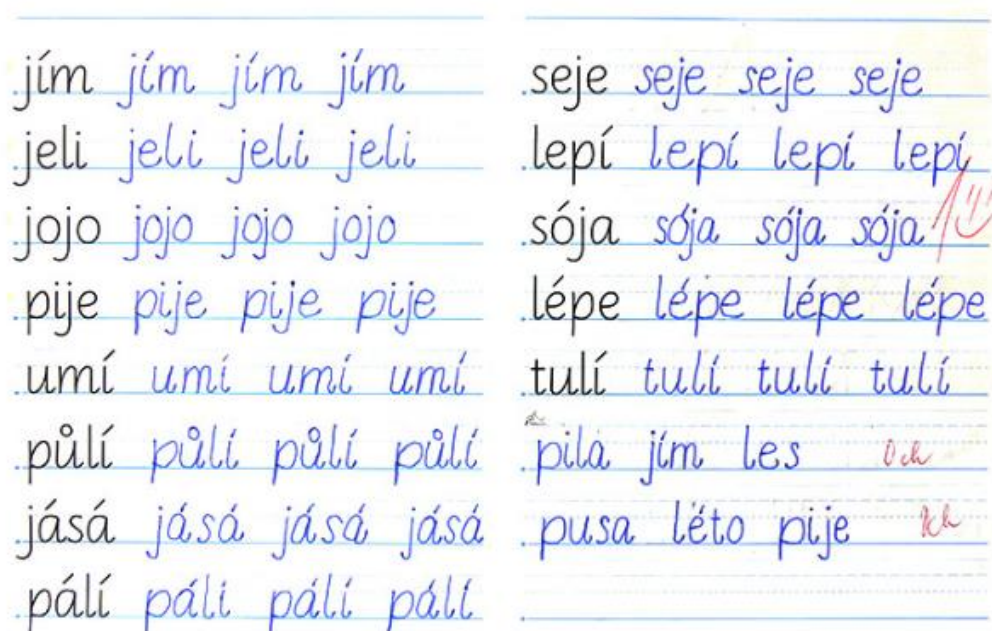 jím jím jím jím
jeli jeli jeli jeli
jojo jojo jojo jojo
pije pije pije pije
umí umí umí umí
půlí půlí půlí půlí
jásá jásá jásá jásá
pálí pálí pálí pálí
seje seje seje seje
lepí lepí lepí lepí
sója sója sója sója
lépe lépe lépe lépe
tulí tulí tulí tulí
pila jím les
pusa léto pije